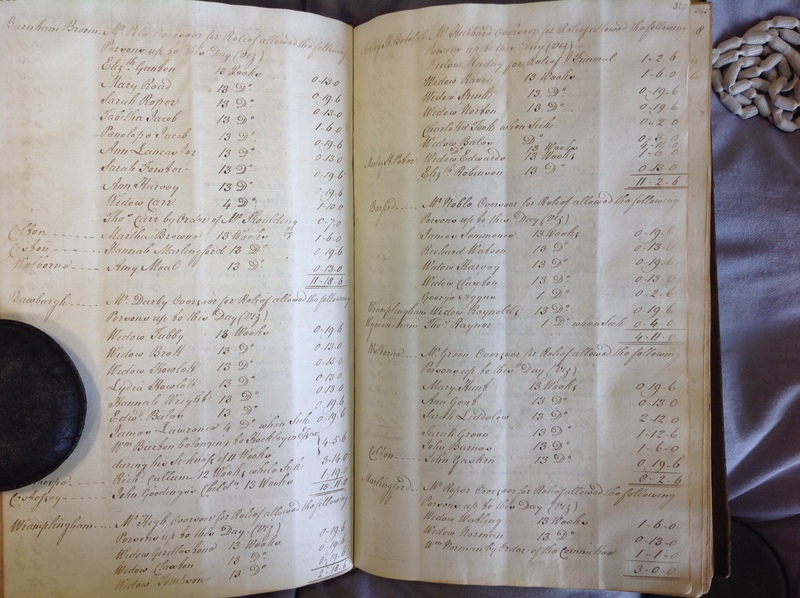 Barnham Broom. Mr. Overseer for Relief allowed the following
Persons up to this Day (viz)
Elizth. Gunton 13 Weeks 0-13-0
Mary Road 13 Do. 0-19-6
Sarah Roper 13 Do. 0-13-0
Tabitha Jacob 13 Do. 1-6-0
Penelope Jacob 13 Do. 0-19-6
Ann Lancaster 13 Do. 0-13-0
Sarah 13 Do. 0-19-6
Ann Harvey 13 Do. 19-6
Widow Carr 4 Do. 1-10-0
Thos. Carr by Order of Mr. 0-7-0
Colton Martha Browne 13 Weeks 1-6-0
Easton Hannah Marlingford 13 Do. 0-19-6
Welborne Amy Moal 13 Do. 0-13-0
11-18-6
Bawburgh Mr. Darby Overseer for Relief allowed the following
Persons up to this Day (viz)
Widow Tubby 13 Weeks 0-19-6
Widow Brett 13 Do. 0-13-0
Widow 13 Do. 0-13-0
Lydia 13 Do. 0-13-0
Hannah Wright 13 Do. 19-6
Edwd. Bales 13 Do. 0-19-6
James Lawrence 4 Do. when Sick
Wm. Burton belonging to
during his Sickness of 11 Weeks 4-5-6
Richd. Cullum 12 Weeks while Sick 3-14-0
Costessey John Goodings Childn. 13 Weeks 1-19-0
15-11-0
Wramplingham Mr. High Overseer for Relief allowed the following
Persons up to this Day. (viz)
Widow Girdlestone 13 Weeks 0-19-6
Widow Claxton 13 Do. 0-19-6
Widow 13 Do. 0-19-6
2-18-6
Mr. Hubbard Overseer for Relief allowed the following
Persons up to this Day (viz)
Widow Unday for Relief & Funeral 1-2-6
Widow Raven 13 Weeks 1-6-0
Widow 13 Do. 0-19-6
Widow Norton 13 Do. 0-19-6
Charlotte Took when Sick 0-2-0
Widow Bales Do.
Widw. Edwards 13 Weeks
Elizth. Robinson 13 Do. 0-13-0
11-2-6
Mr. Noble Overseer for Relief allowed the following
Persons up to this Day (viz)
James Simmonds 13 Weeks 0-19-0
Richard Watson 13 Do. 0-13-0
Widow Harvey 13 Do. 0-19-6
Widow Claxton 13 Do. 0-13-0
George 1 Do. 0-2-6
Wramplingham Widow Reynolds 13 Do. 0-19-6
Wymondham Thos. Raynor 1 Do. when Sick 0-4-0
4-11-0
Welborne Mr. Green Overseer for Relief allowed the following
Persons up to this Day (viz)
Mary Hunt 13 Weeks 0-19-6
Ann Gent 13 Do. 0-13-0
Sarah Liddelow 13 Do. 2-12-0
Sarah Green 13 Do. 1-12-6
John Barnes 13 Do. 1-6-0
Colton John Gaskin 13 Do. 0-19-6
8-2-6
Marlingford Mr. Roper Overseer for Relief allowed the following
Persons up to this Day (viz)
Widow Watling 13 Weeks 1-6-0
Widow Norman 13 Do. 0-13-0
Wm. Norman by Order of the Committee 1-1-0
3-0-0